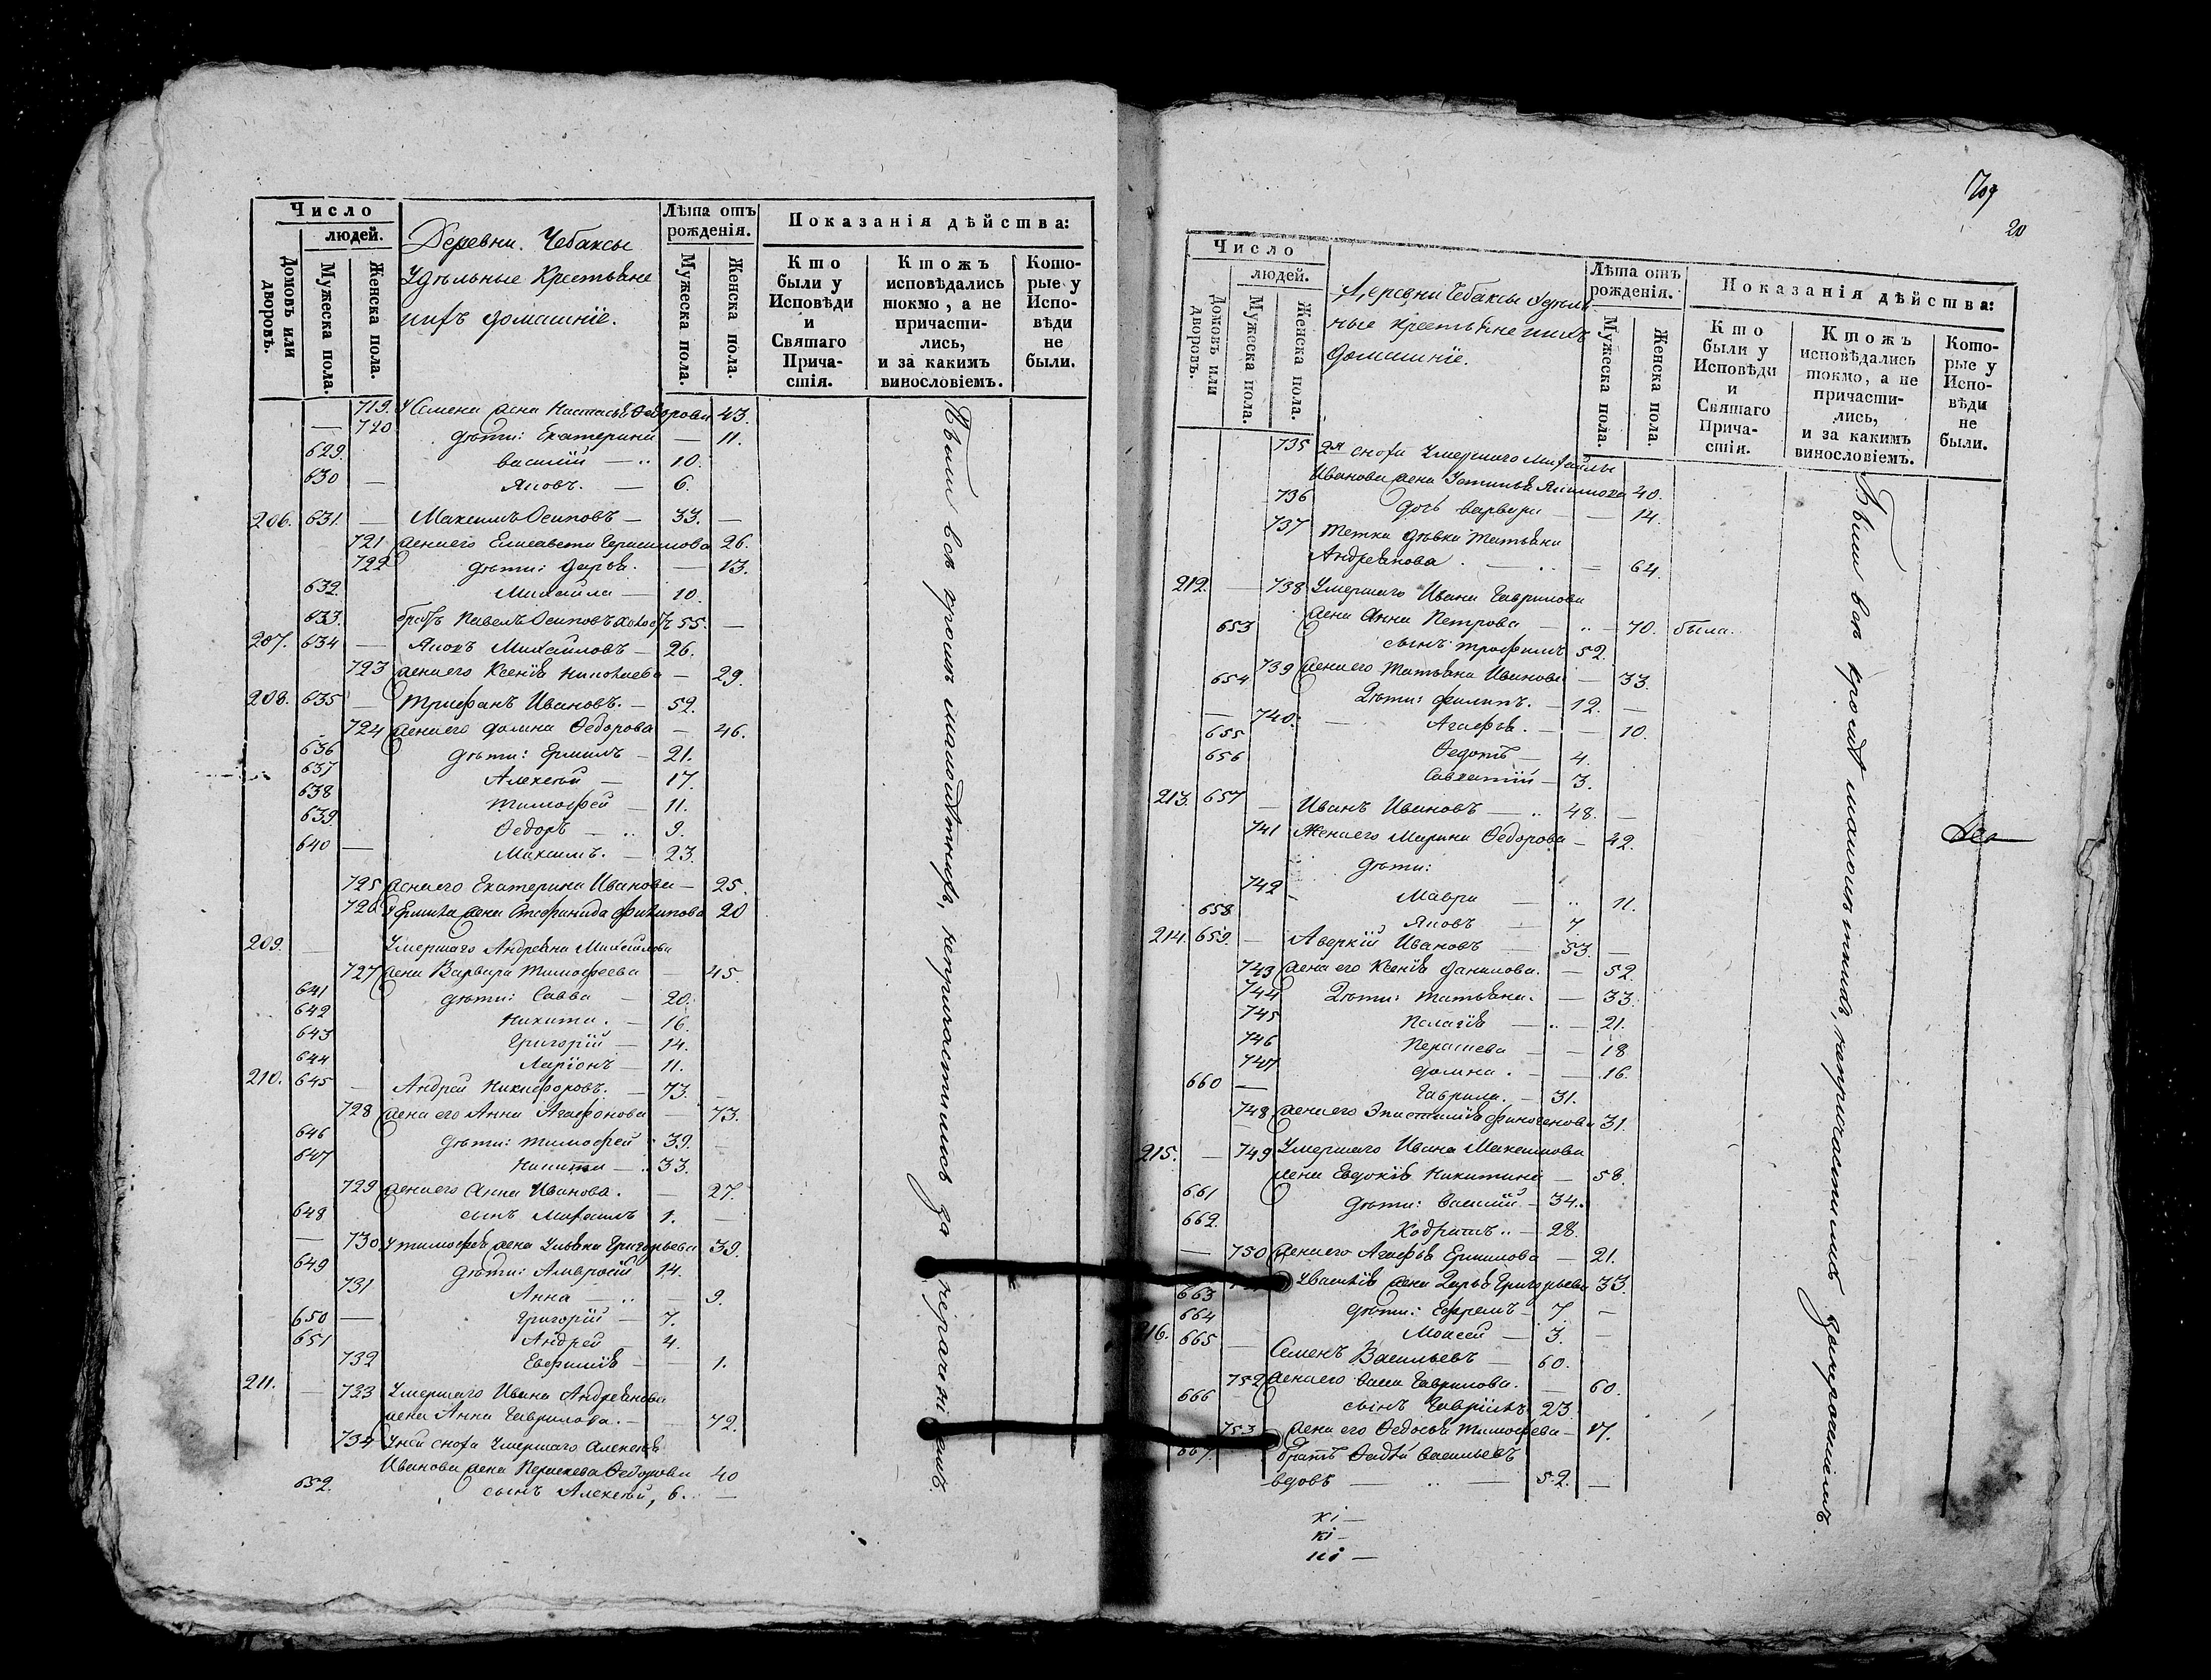 Число
людей.
Домовъ или дворовъ.
Мужеска пола.
Женска пола.
Деревни Чебаксы
Удѣльные Крестьяне
ихъ домашніе.
Лѣта отъ
рожденія.
Мужеска пола.
Женска пола.
Показанія дѣйства:
Кто
были у
Исповѣди
и
Святаго
Прича-
стія.
Ктожъ
исповѣдались
токмо, а не
причасти-
лись,
и за какимъ
винословіемъ.
Кото-
рые у
Испо-
вѣди
не
были.
719. У Семена жена Настасья Ѳедорова 43.
— 720 дѣти: Екатерина — 11.
629. Василій — 10.
630 — Яковъ. — 6.
206. 631. — Максимъ Осиповъ — 33. —
721 жена его Елисавета Герасимова 26.
722 дѣти: Дарья. — 13.
632. Михайла — 10.
633. братъ Павелъ Осиповъ холостъ 55. —
207. 634 — Яковъ Михайловъ — 26.
723 жена его Ксенія Николаева — 29.
208. 635 — Трифанъ Ивановъ. — 52.
724 жена его Домна Ѳедорова — 46.
636 дѣти: Ермилъ — 21.
637 Алексѣй — 17.
638 Тимофей — 11.
639. Ѳедоръ — 9.
640 — Максимъ. — 23.
725 жена его Екатерина Иванова — 25.
726 У Ермила жена Стефанида Филипова 20
209. — Умершаго Андреяна Михайлова
727 жена Варвара Тимофеева — 45.
641 дѣти: Савва — 20.
642 Никита. — 16.
643 Григорій — 14.
644 Ларіонъ — 11.
210. 645 — Андрей Никифоровъ. — 73. —
728 жена его Анна Агафонова — 73.
646 дѣти: Тимофей 39. —
647 Никита — 33.
729 жена его Анна Иванова. — 27.
648 сынъ Михаилъ 1. —
— 730 У Тимофея жена Ульяна Григорьева 39.
649 дѣти: Амвросій 14.
731 Анна — 9.
650 — Григорій — 7.
651 Андрей — 4.
732 Евфимія — 1.
211. — 733 Умершаго Ивана Андреянова
жена Анна Гаврилова. — 72.
734 У ней сноха Умершаго Алексѣя
Иванова жена Параскева Ѳедорова 40
652. сынъ Алексѣй, 6. —
Были всѣ кромѣ малолѣтнихъ, непричастились за
709
20
Число
людей.
Домовъ или дворовъ.
Мужеска пола.
Женска пола.
Деревни Чебаксы Удѣль-
ные крестьяне ихъ
домашніе.
Лѣта отъ
рожденія.
Мужеска пола.
Женска пола.
Показанія дѣйства:
Кто
были у
Исповѣди
и
Святаго
Прича-
стія.
Ктожъ
исповѣдались
токмо, а не
причасти-
лись,
и за какимъ
винословіемъ.
Кото-
рые у
Испо-
вѣди
не
были.
735 2я сноха Умершаго Михайлы
Иванова жена Устинья Якимова 40.
736 дочь Варвара — 14.
737 Тетка дѣвка Татьяна
Андреянова — 64.
212. — 738 Умершаго Ивана Гаврилова
жена Анна Петрова — 70. была.
653 сынъ Трофимъ 52.
739 жена его Татьяна Иванова — 33.
654 Дѣти: Филипъ. — 12. —
— 740. — Агафья. — 10.
655 Ѳедотъ — 4.
656 Савватій — 3.
213. 657 — Иванъ Ивановъ — 48. —
741 Жена его Марина Ѳедорова — 42.
дѣти:
742 Мавра — 11.
658 Яковъ — 7
214. 659. — Аверкій Ивановъ — 53. —
743 жена его Ксенія Данилова. — 52
744 Дѣти: Татьяна. — 33.
745 Пелагія — 21.
746 Параскева — 18
747 Домна. — 16.
660 — Гаврила. — 31.
748 жена его Эпистимія Финогенова 31.
215. — 749 Умершаго Ивана Максимова
жена Евдокія Никитина — 58.
661 дѣти: Василій — 34.
662. Кодратъ — 28.
— 750 жена его Агафья Ермилова — 21.
У Василія жена Дарья Григорьева 33.
663 дѣти: Ефремъ — 7 —
664 Моисей — 3. —
216. 665 — Семенъ Васильевъ — 60.
752 жена его Гаврилова. — 60.
666 сынъ Гаврілъ 23
753 жена его Ѳедосья Тимофеева — 17.
667. братъ Ѳадѣй Васильевъ
вдовъ — 52. —
Были всѣ кромѣ малолѣтнихъ, непричастились
кі —
кі —